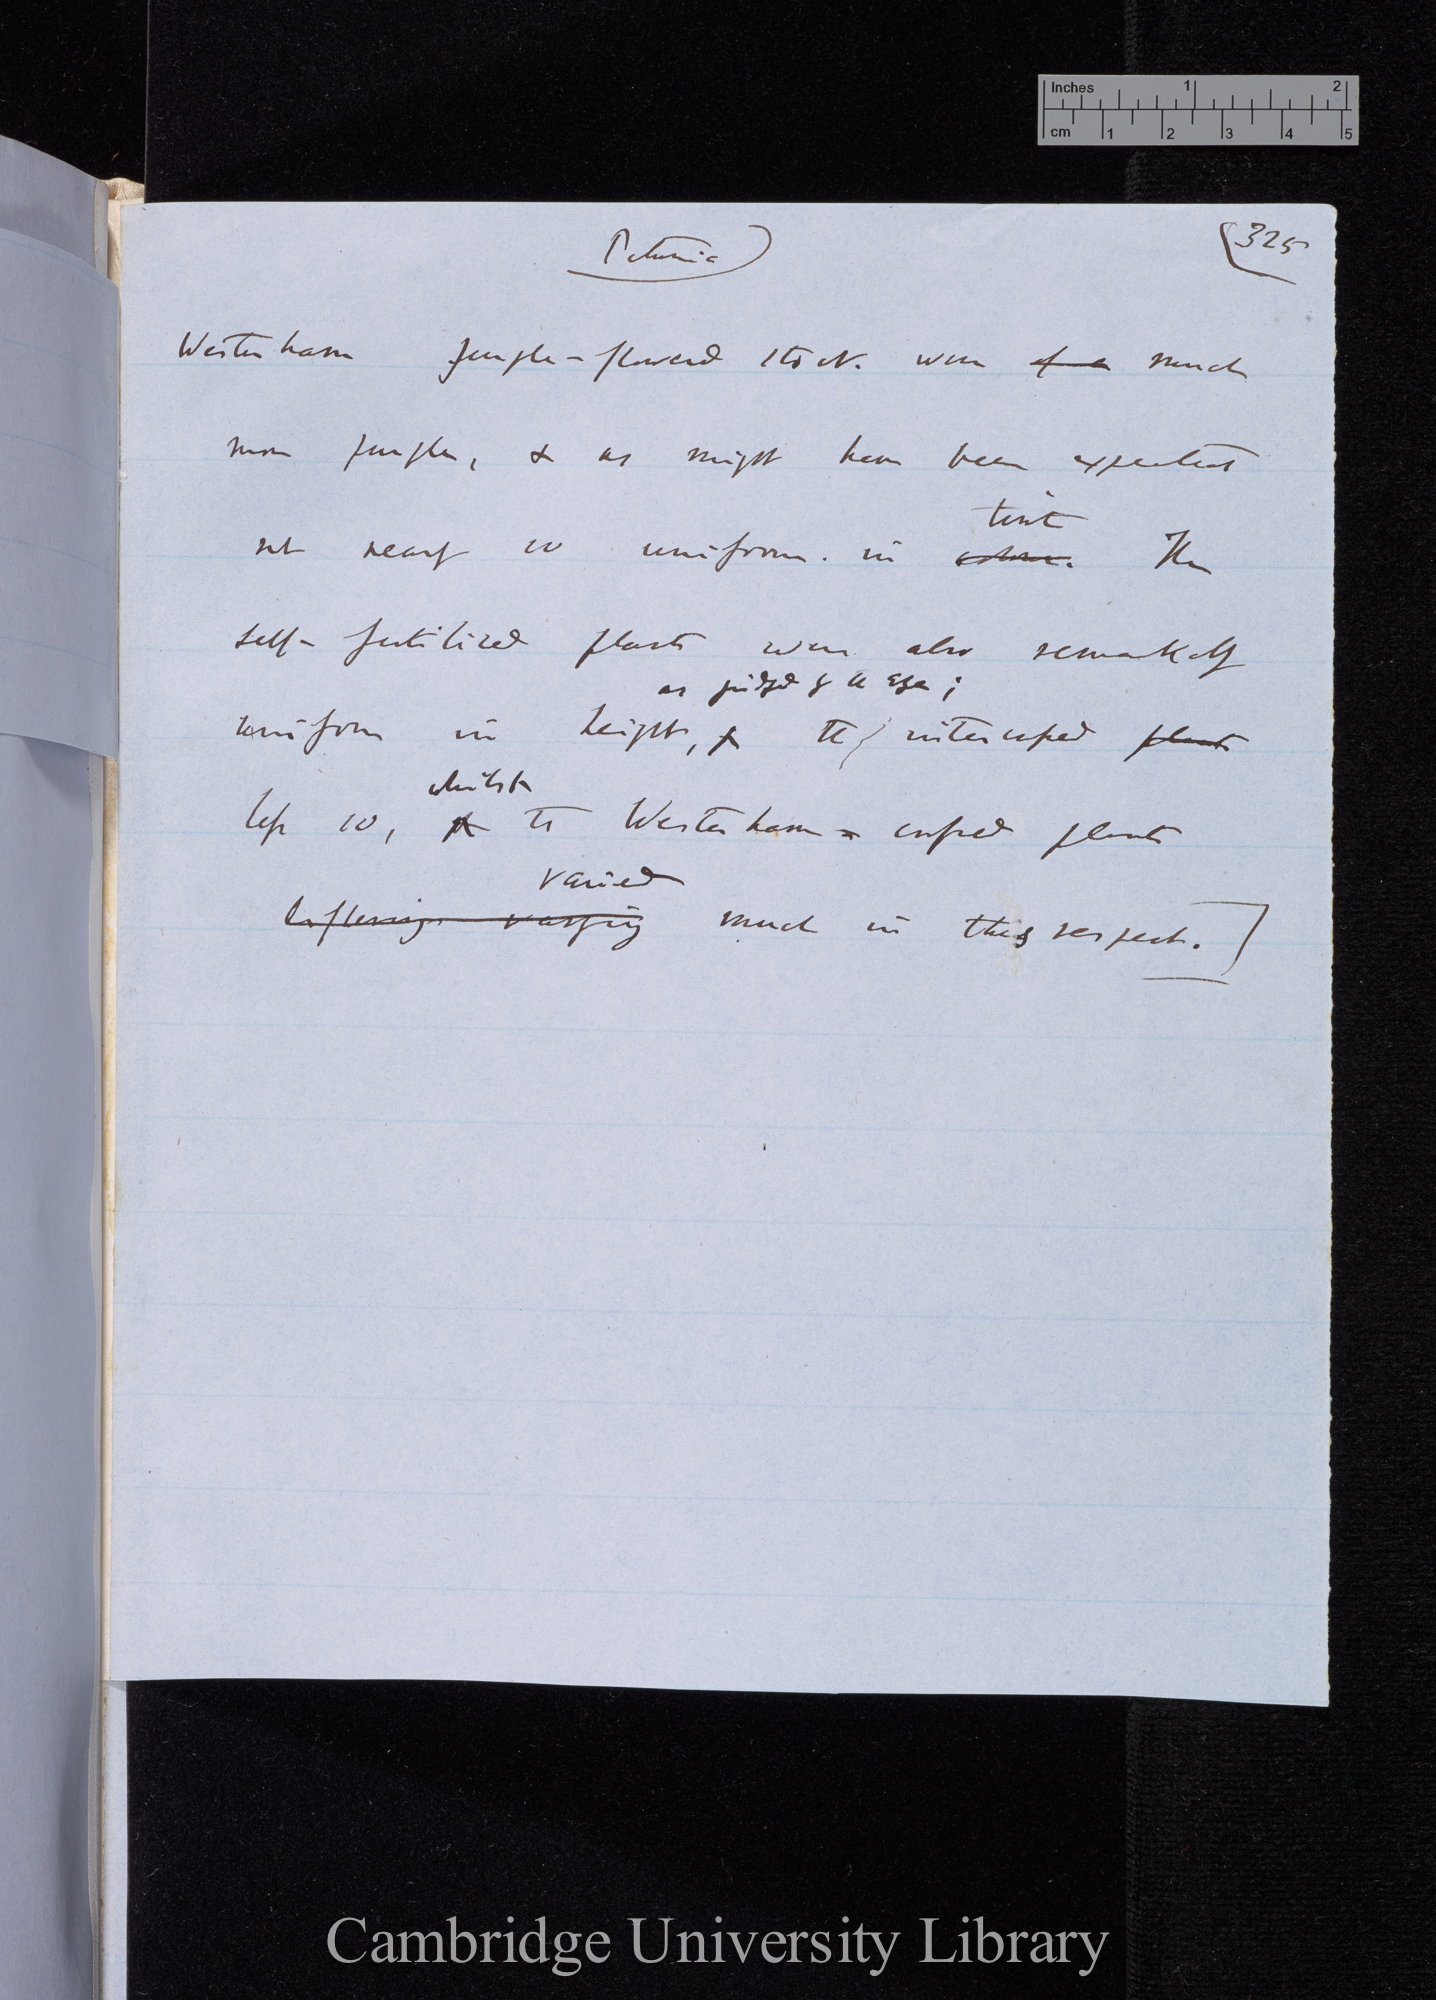 Inches 1 2
cm 1 2 3 4 5
Petunia
325
Westerham purple-flowered stock. were much
more purple, & as might have been expected
tint
not nearly so uniform. in colour. The
self-fertilized plants were also remarkably
as judged by the eye;
uniform in height, the intercrossed plants
whilst
less so, the Westerham-crossed plants
varied
varying much in this respect.
Cambridge University Library